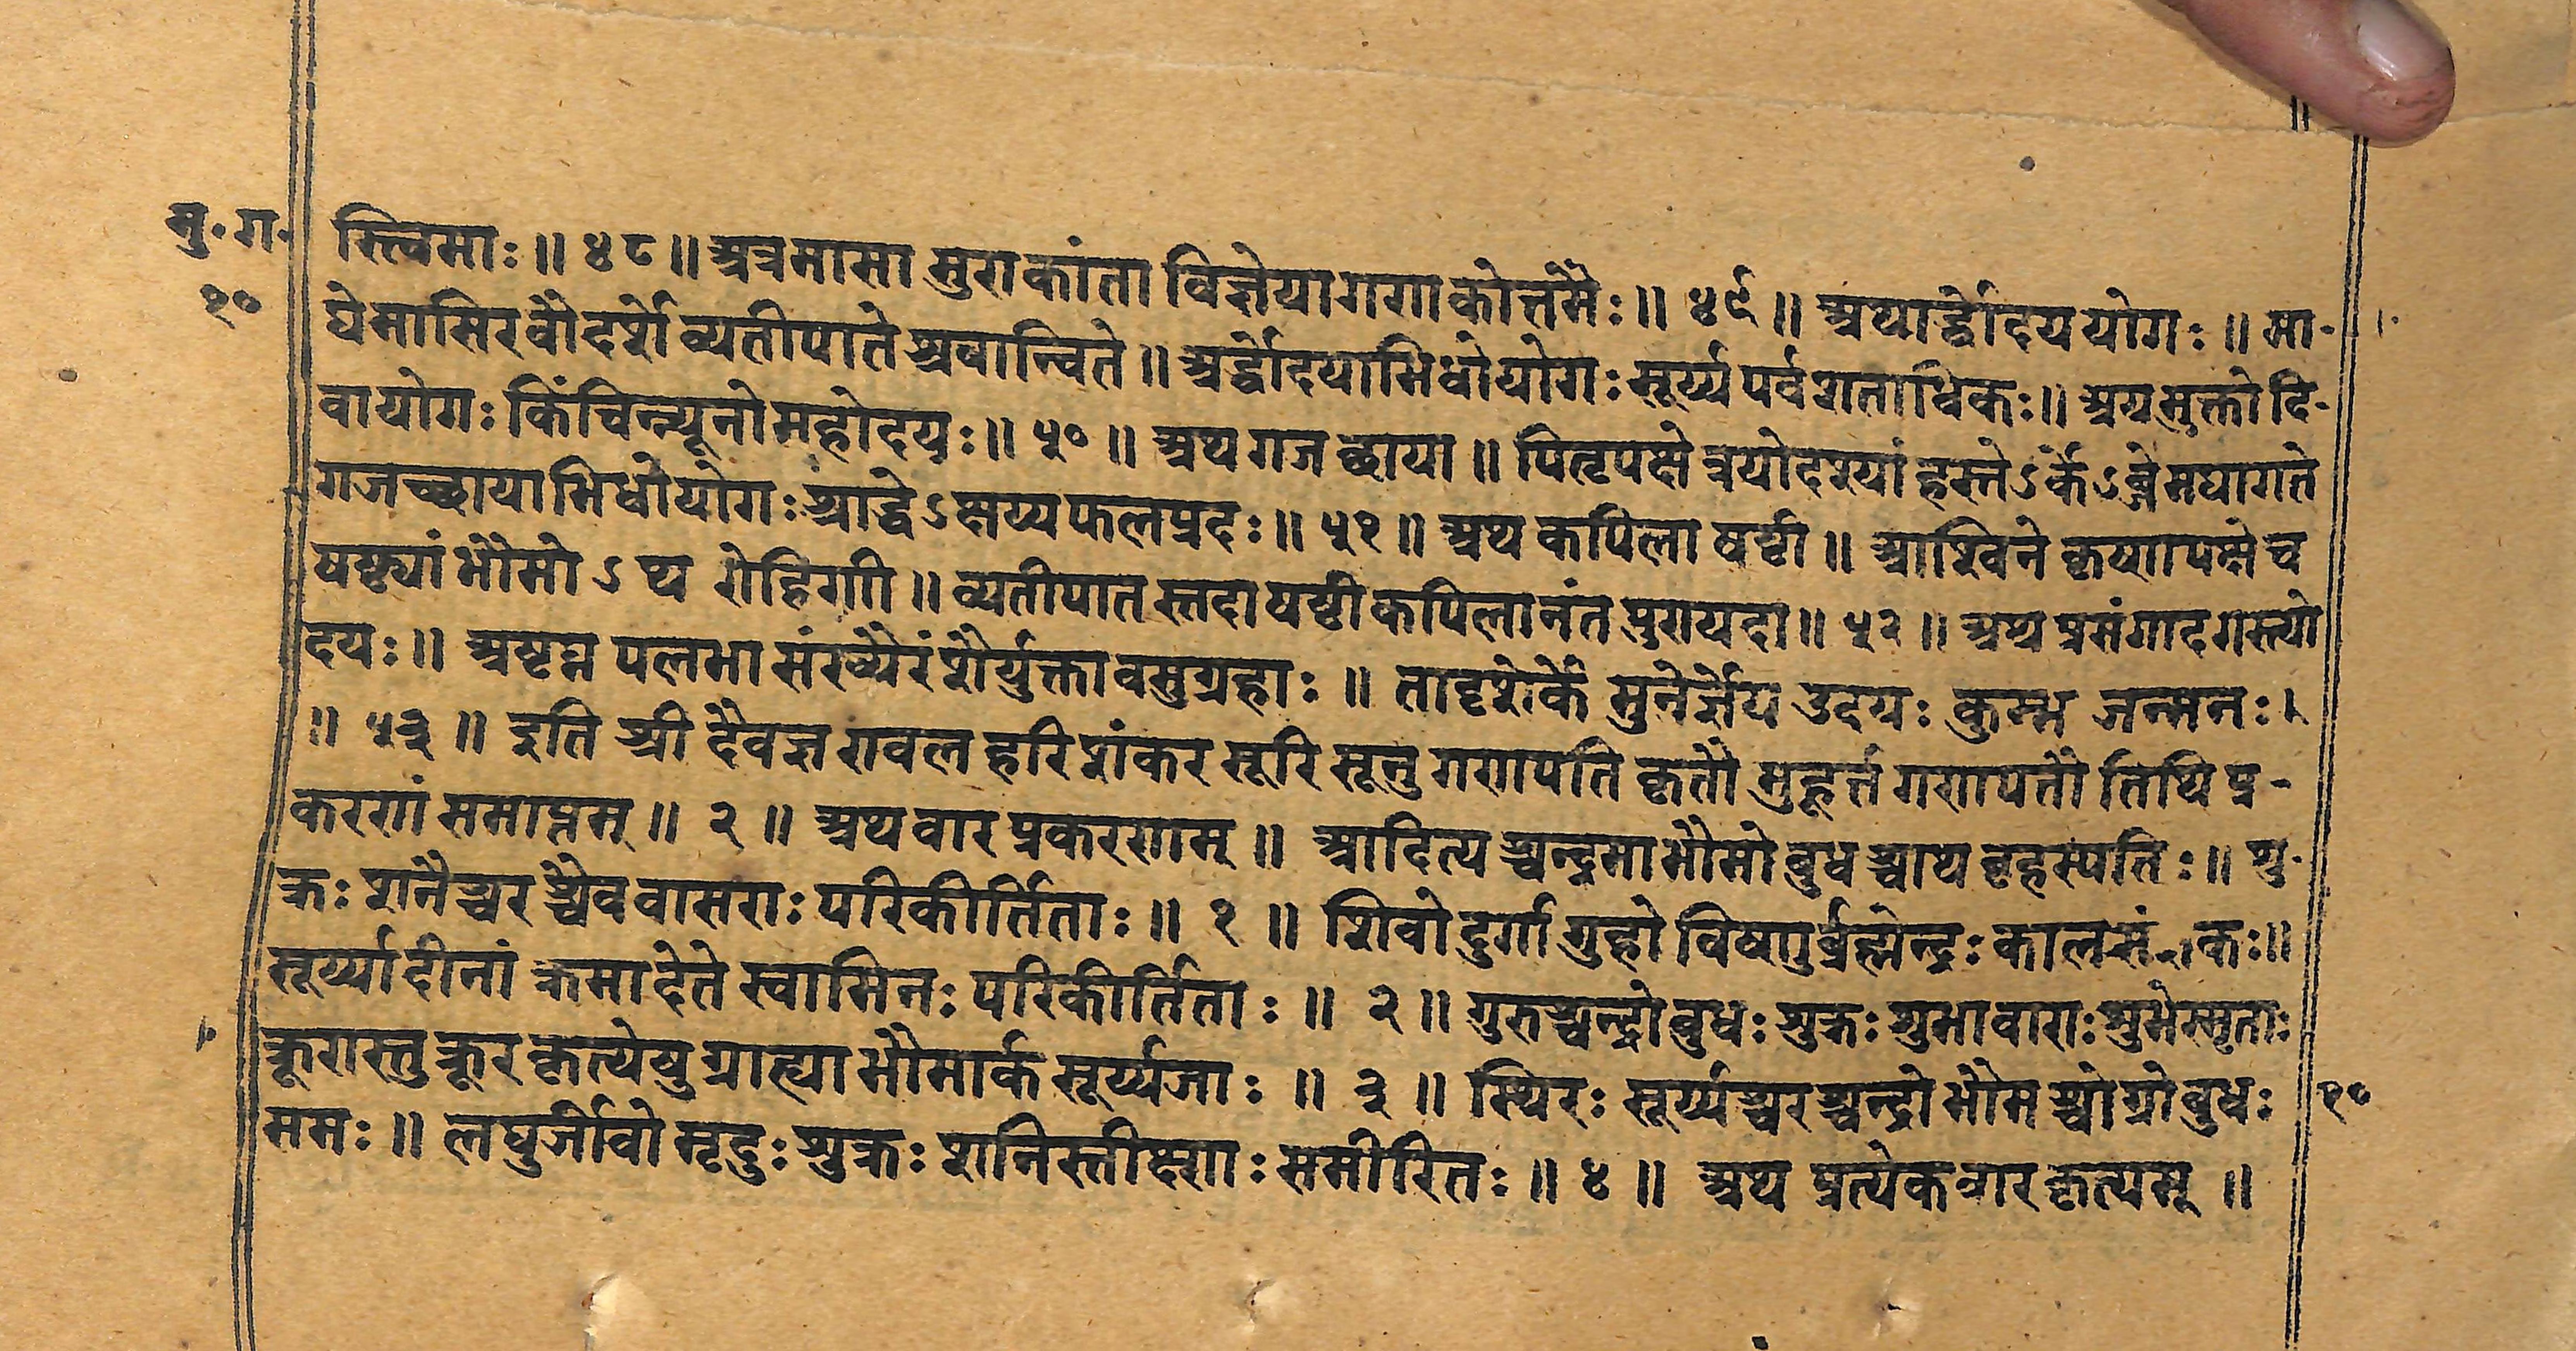 मु॰ग॰
१०
स्त्विमाः ॥ ४८ ॥ अत्रमासा सुराकांता विज्ञेयागणकोत्तमैः ॥ ४९ ॥ अथार्द्धोदययोगः ॥ मा-
घेमासिरवौदर्शे व्यतीपाते श्रवान्विते ॥ अर्द्धोदयाभिधोयोगः सूर्य्यपर्वशताधिकः ॥ अयमुक्तोदि-
वायोगः किंचिन्न्यूनोमहोदयः ॥ ५० ॥ अथ गजच्छाया ॥ पितृपक्षे त्रयोदश्यां हस्तेऽर्केऽब्जेमघागते
गजच्छायाभिधोयोगः श्राद्धेऽक्षय्यफलप्रदः ॥ ५१ ॥ अथ कपिला षष्ठी ॥ आश्विने कृष्णपक्षे च
षष्ठ्यां भौमोऽथ रोहिणी ॥ व्यतीपातस्तदा षष्ठी कपिलानंत पुण्यदा ॥ ५२ ॥ अथ प्रसंगादगस्त्यो
दयः ॥ अष्टघ्न पलभा संख्यैरंशैर्युक्तावसुग्रहाः ॥ तादृशेर्के मुनेर्ज्ञेय उदयः कुम्भ जन्मनः ॥
॥ ५३ ॥ इति श्री दैवज्ञ रावल हरिशंकर सूरि सूनु गणपति कृतौ मुहूर्त्त गणपतौ तिथि प्र-
करणं समाप्तम् ॥ २ ॥ अथ वार प्रकरणम् ॥ आदित्यश्चन्द्रमा भौमो बुधश्चाथ बृहस्पतिः ॥ शु-
क्रः शनैश्चरश्चैव वासराः परिकीर्तिताः ॥ १ ॥ शिवो दुर्गा गुहो विष्णुर्ब्रह्मेन्द्रः कालसंज्ञकः ॥
सूर्य्यादीनां क्रमादेते स्वामिनः परिकीर्तिताः ॥ २ ॥ गुरुश्चन्द्रो बुधः शुक्रः शुभावाराः शुभेस्मृताः
क्रूरास्तु क्रूर कृत्येषु ग्राह्या भौमार्क सूर्य्यजाः ॥ ३ ॥ स्थिरः सूर्य्यश्चरश्चन्द्रो भौमश्चोग्रो बुधः
समः ॥ लघुर्जीवो मृदुः शुक्रः शनिस्तीक्ष्णः समीरितः ॥ ४ ॥ अथ प्रत्येकवार कृत्यम् ॥
१०